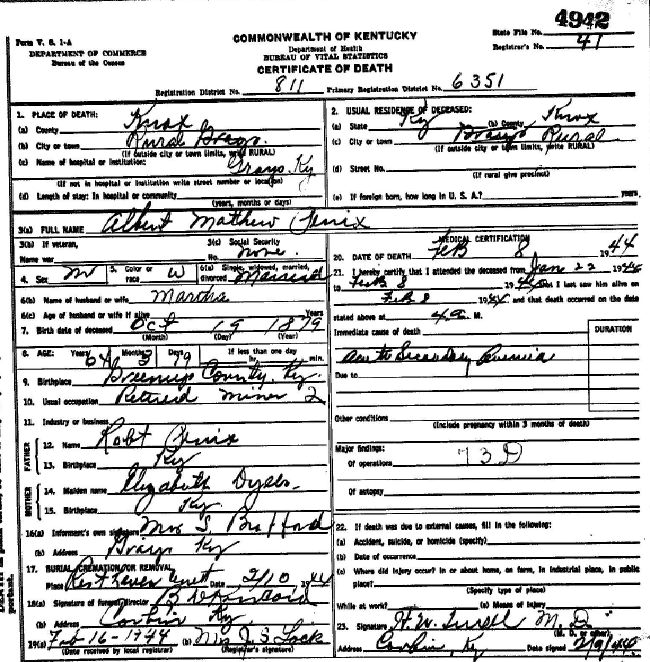 4942
Form V. S. 1-A
COMMONWEALTH OF KENTUCKY
State File No.
DEPARTMENT OF COMMERCE
Bureau of the Census
Department of Health
BUREAU OF VITAL STATISTICS
Registrar's No. 41
CERTIFICATE OF DEATH
Registration District No. 811 Primary Registration District No. 6351
1. PLACE OF DEATH:
(a) County Knox
(b) City or town Rural Grays
(If outside city or town limits, write RURAL)
(c) Name of hospital or institution: Grays, Ky
(If not in hospital or institution write street number or location)
(d) Length of stay: In hospital or community
(years, months or days)
2. USUAL RESIDENCE OF DECEASED:
(a) State Ky (b) County Knox
(c) City or town Grays Rural
(If outside city or town limits, write RURAL)
(d) Street No.
(If rural give precinct)
(e) If foreign born, how long in U. S. A.? years
3(a) FULL NAME Albert Matthew Fenix
3(b) If veteran,
Name war
3(c) Social Security
No. none
4. Sex M 5. Color or race W 6(a) Single, widowed, married, divorced Married
6(b) Name of husband or wife Martha
6(c) Age of husband or wife if alive Years
7. Birth date of deceased Oct 19 1879
(Month) (Day) (Year)
8. AGE: Years 64 Months 3 Days 19 If less than one day hr. min.
9. Birthplace Greenup County, Ky.
10. Usual occupation Retired Miner 2
11. Industry or business
FATHER
12. Name Robt Fenix
13. Birthplace Ky
MOTHER
14. Maiden name Elizabeth
15. Birthplace Ky.
16(a) Informant's own signature Mrs S Brafford
(b) Address Grays Ky
17. BURIAL, CREMATION, OR REMOVAL
Place Rest Haven Date 2/10 1944
18(a) Signature of funeral director
(b) Address Corbin Ky
19(a) Feb-16-1944 (b) Mrs J S Lock
(Date received by local registrar) (Registrar's signature)
MEDICAL CERTIFICATION
20. DATE OF DEATH Feb 8 1944
21. I hereby certify that I attended the deceased from Jan 22 1944
to Feb 8 1944 that I last saw him alive on
Feb 8 1944 and that death occurred on the date
stated above at 4 a. M.
DURATION
Immediate cause of death
Secondary Anemia
Due to
Other conditions
(Include pregnancy within 3 months of death)
Major findings: 73D
Of operations
Of autopsy
22. If death was due to external causes, fill in the following:
(a) Accident, suicide, or homicide (specify)
(b) Date of occurrence
(c) Where did injury occur? in or about home, on farm, in industrial place, in public
place?
(Specify type of place)
While at work? (e) Means of injury
23. Signature M. D.
(M. D. or other)
Address Corbin, Ky Date signed 2/9/44